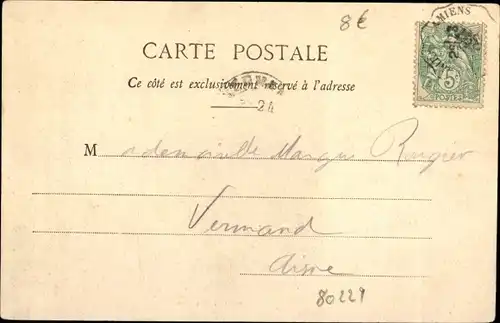 8€
AMIENS
5c
POSTES
CARTE POSTALE
Ce côté est exclusivement réservé à l'adresse
24
Mademoiselle
Vermand
Aisne
80229